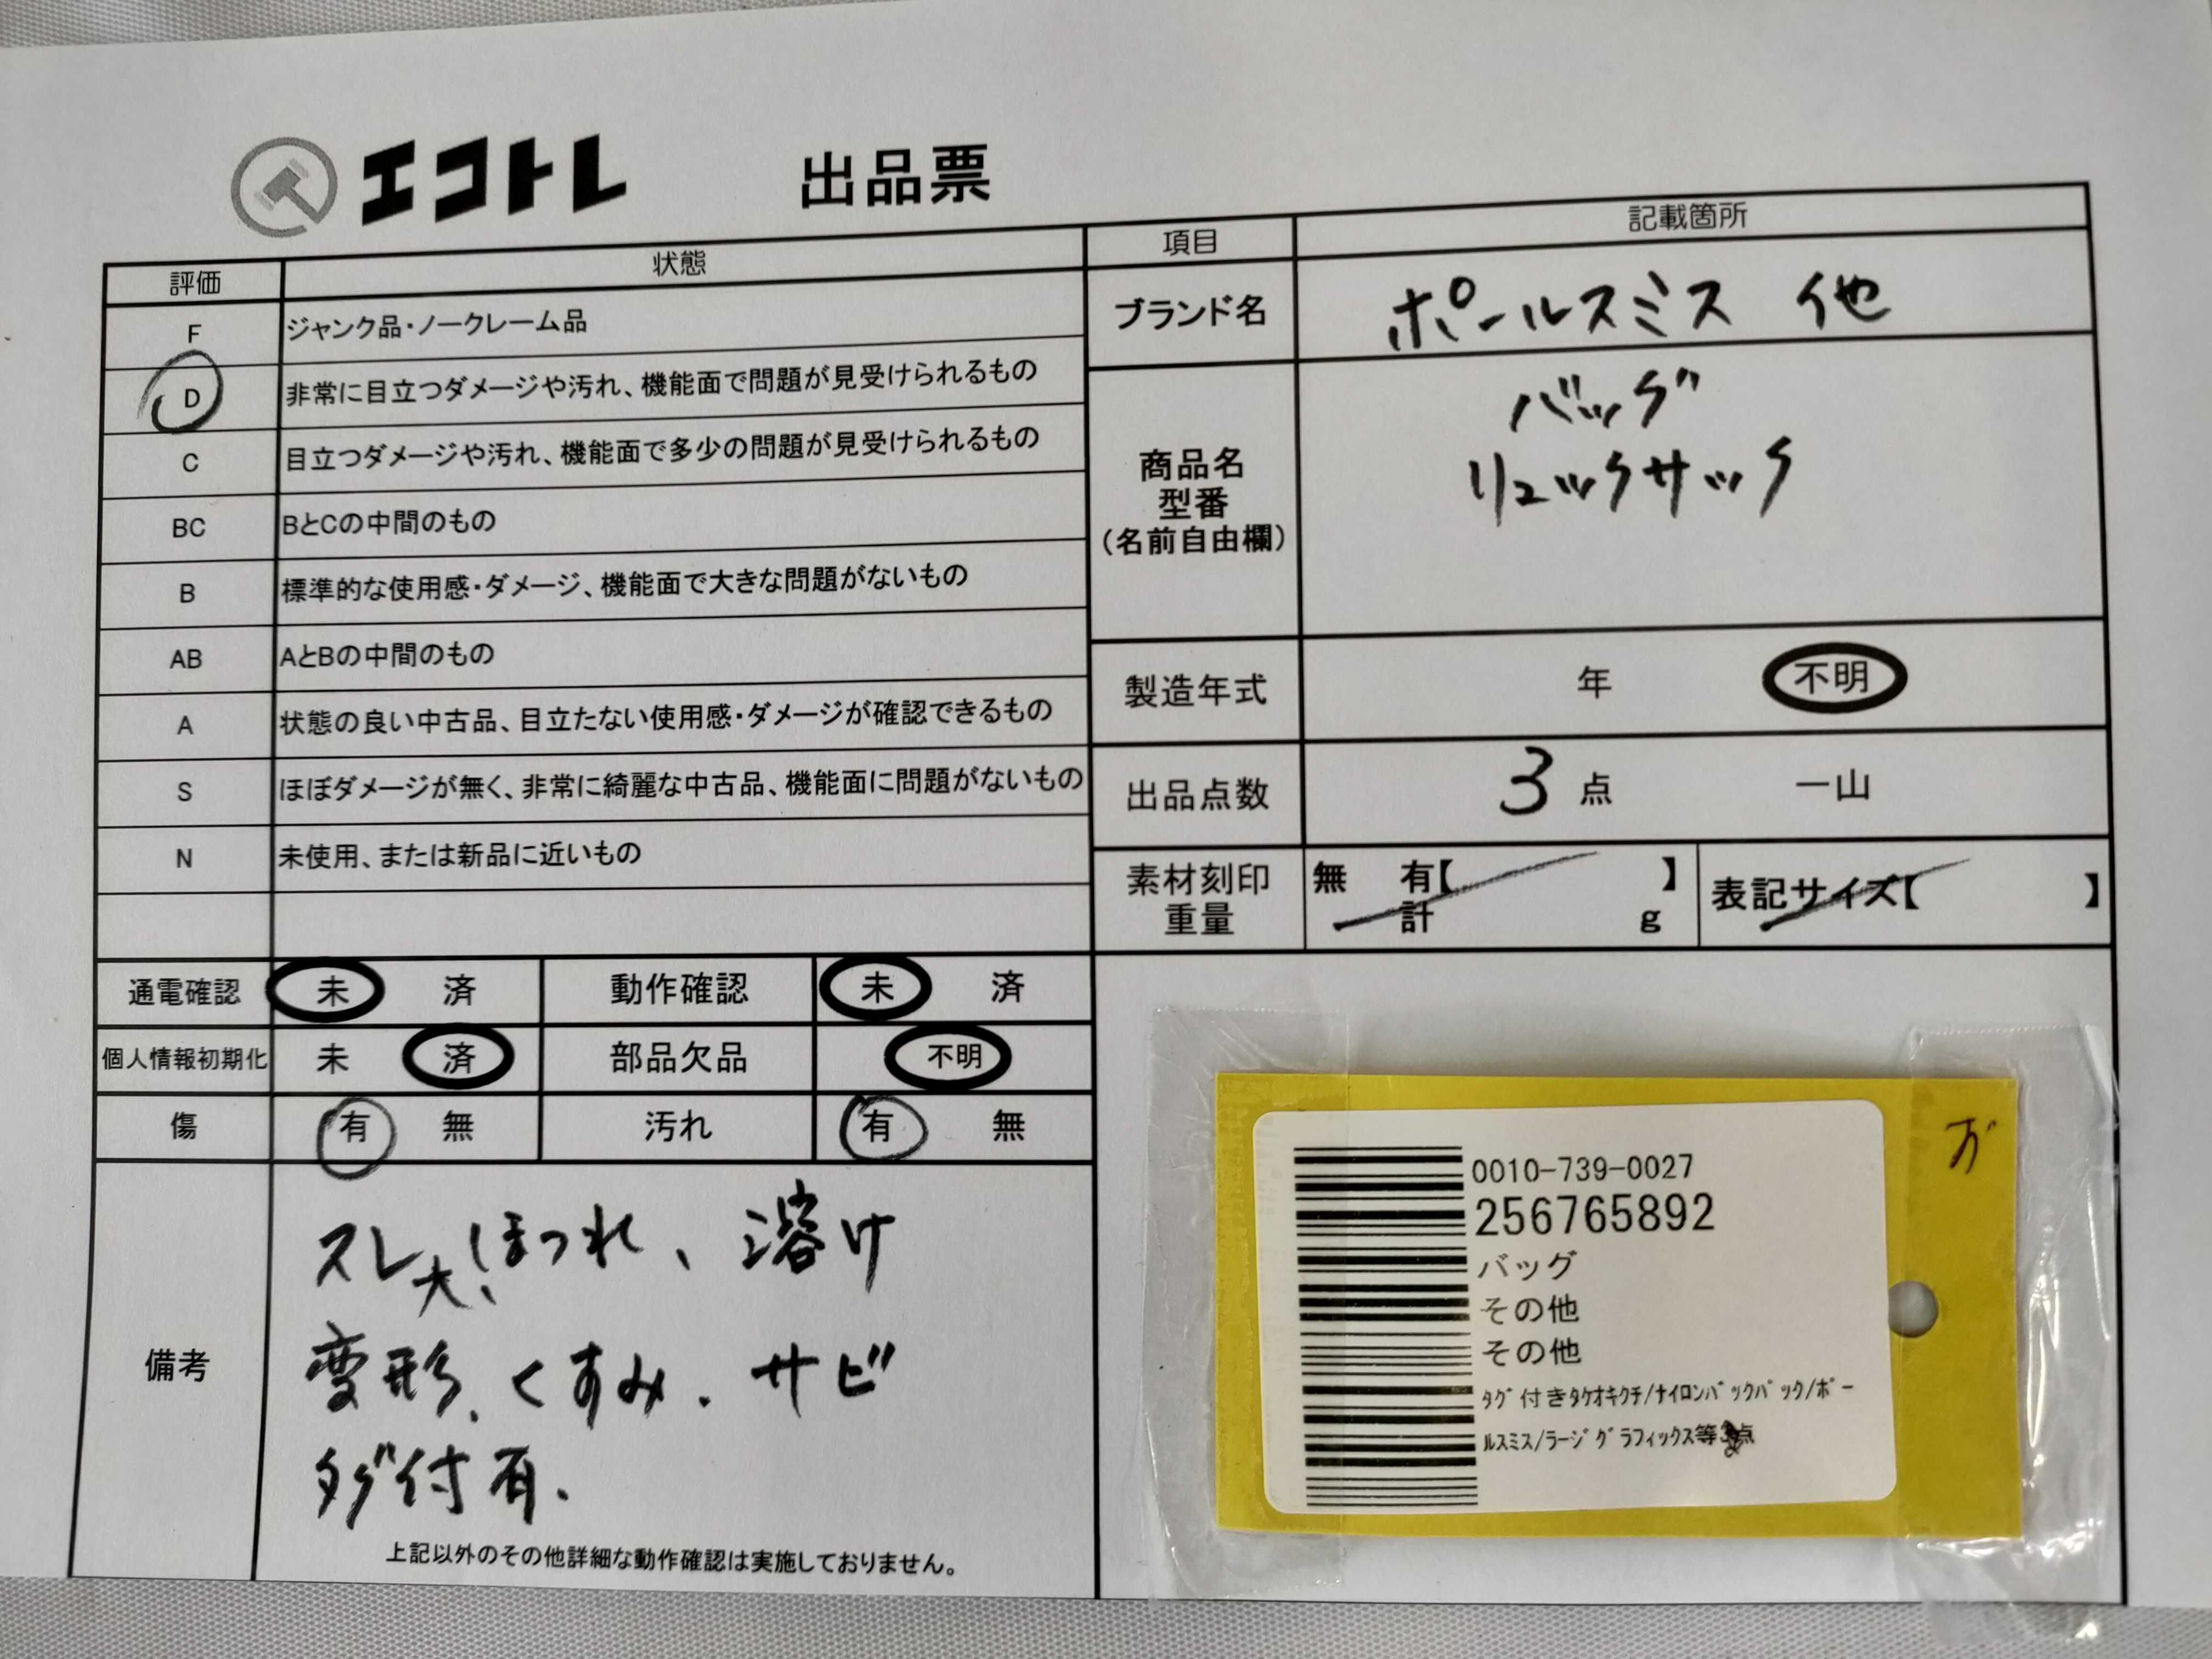 エコトレ 出品票
評価 状態
F ジャンク品・ノークレーム品
D 非常に目立つダメージや汚れ、機能面で問題が見受けられるもの
C 目立つダメージや汚れ、機能面で多少の問題が見受けられるもの
BC BとCの中間のもの
B 標準的な使用感・ダメージ、機能面で大きな問題がないもの
AB AとBの中間のもの
A 状態の良い中古品、目立たない使用感・ダメージが確認できるもの
S ほぼダメージが無く、非常に綺麗な中古品、機能面に問題がないもの
N 未使用、または新品に近いもの
通電確認 未 済 動作確認 未 済
個人情報初期化 未 済 部品欠品 不明
傷 有 無 汚れ 有 無
備考
スレ大、ほつれ、溶け
変形、くすみ、サビ
タグ付有.
上記以外のその他詳細な動作確認は実施しておりません。
項目 記載箇所
ブランド名 ポールスミス 他
商品名
型番
(名前自由欄)
バッグ
リュックサック
製造年式 年 不明
出品点数 3 点 一山
素材刻印 無 有【 】
重量 計 g
表記サイズ【 】
0010-739-0027
256765892
バッグ
その他
その他
ﾀｸﾞ付きﾀｹｵｷｸﾁ/ﾅｲﾛﾝﾊﾞｯｸﾊﾟｯｸ/ﾎﾟｰ
ﾙｽﾐｽ/ﾗｰｼﾞｸﾞﾗﾌｨｯｸｽ等点